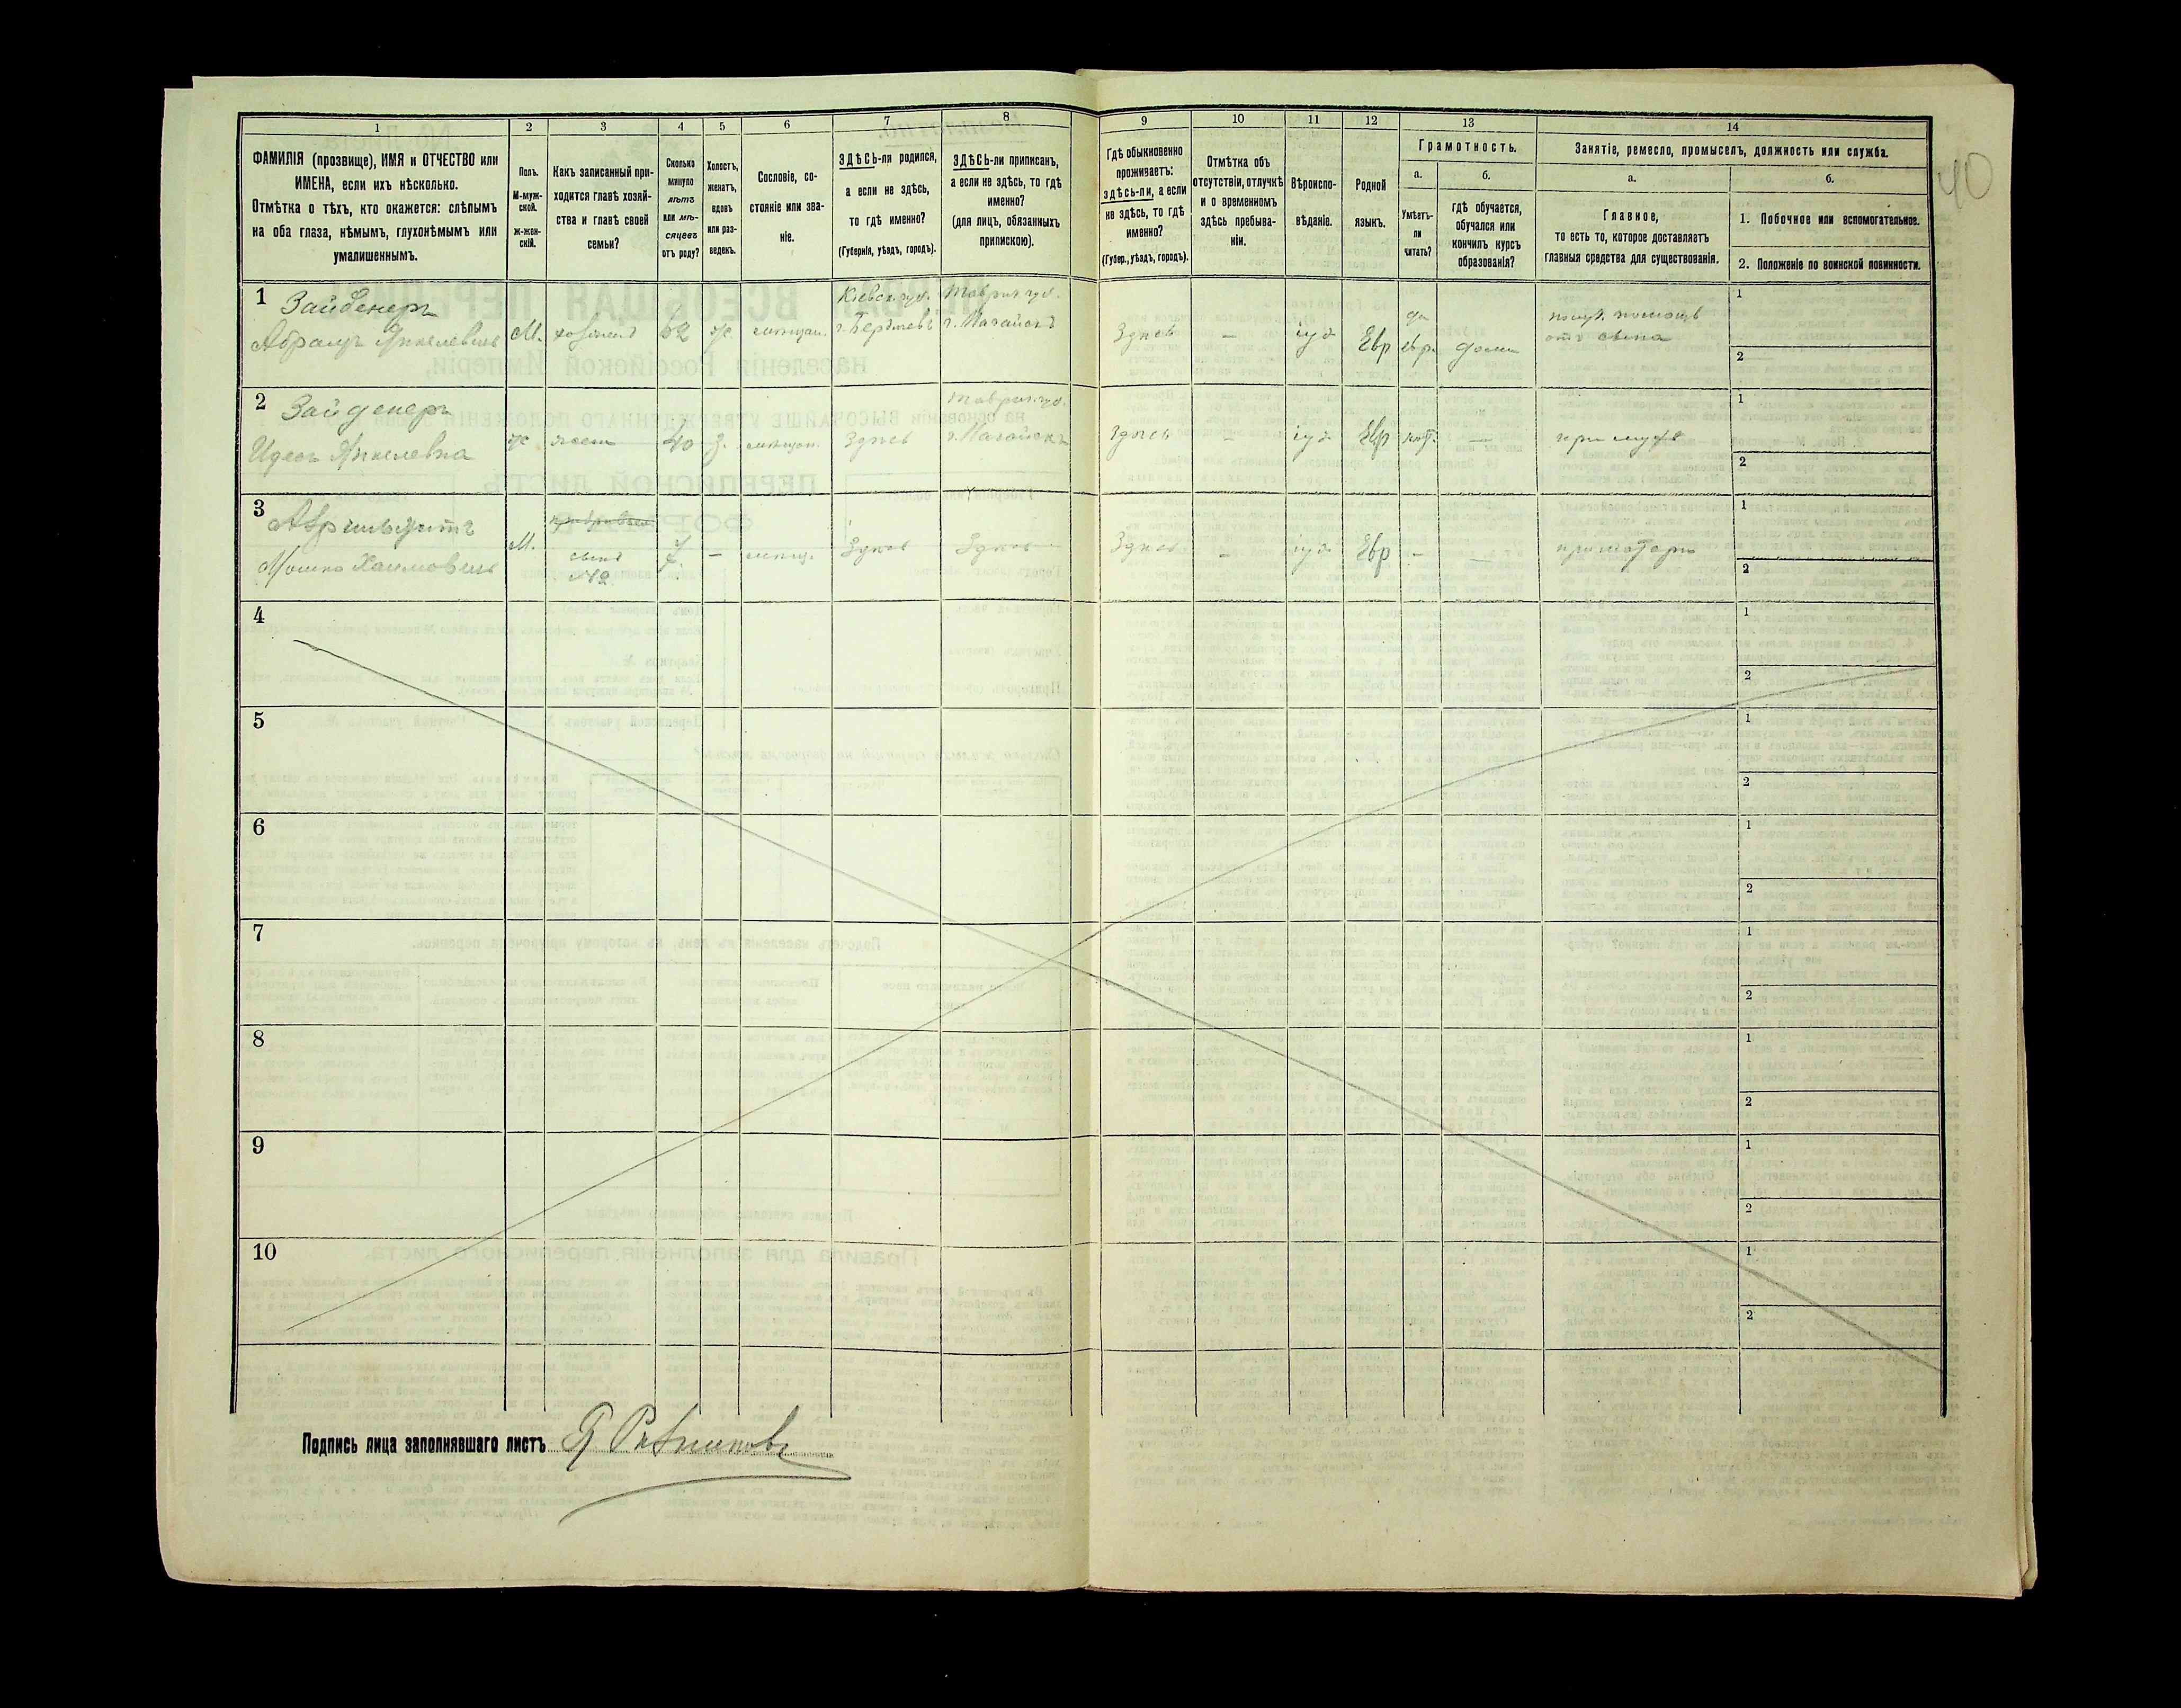 40
1
ФАМИЛІЯ (прозвище), ИМЯ и ОТЧЕСТВО или
ИМЕНА, если ихъ нѣсколько.
Отмѣтка о тѣхъ, кто окажется: слѣпымъ
на оба глаза, нѣмымъ, глухонѣмымъ или
умалишеннымъ.
2
Полъ.
М-муж-
ской.
ж-жен-
скій.
3
Какъ записанный при-
ходится главѣ хозяй-
ства и главѣ своей
семьи?
4
Сколько
минуло
лѣтъ
или мѣ-
сяцевъ
отъ роду?
5
Холостъ,
женатъ,
вдовъ
или раз-
веденъ.
6
Сословіе, со-
стояніе или зва-
ніе.
7
ЗДѢСЬ-ли родился,
а если не здѣсь,
то гдѣ именно?
(Губернія, уѣздъ, городъ).
8
ЗДѢСЬ-ли приписанъ,
а если не здѣсь, то гдѣ
именно?
(для лицъ, обязанныхъ
припискою).
9
Гдѣ обыкновенно
проживаетъ:
здѣсь-ли, а если
не здѣсь, то гдѣ
именно?
(Губер., уѣздъ, городъ).
10
Отмѣтка объ
отсутствіи, отлучкѣ
и о временномъ
здѣсь пребыва-
ніи.
11
Вѣроиспо-
вѣданіе.
12
Родной
языкъ.
13
Грамотность.
а.
Умѣетъ-
ли
читать?
б.
гдѣ обучается,
обучался или
кончилъ курсъ
образованія?
14
Занятіе, ремесло, промыселъ, должность или служба.
а.
Главное,
то есть то, которое доставляетъ
главныя средства для существованія.
б.
1. Побочное или вспомогательное.
2. Положеніе по воинской повинности.
1
Зайденеръ
Абрамъ Янкелевичъ
М.
хозяинъ
ж
мѣщан.
Кіевск. губ.
г. Бердичевъ
Таврич. губ.
г. Ногайскъ
Здѣсь
—
іуд
Евр
да
евр.
дома
помощь
отъ сына
1
2
2
Зайденеръ
Янкелевна
ж
жена
40
з.
мѣщан.
Здѣсь
Таврич. губ.
г. Ногайскъ
Здѣсь
-
іуд
Евр
нѣт.
—
при мужѣ
1
2
3
Мошко Хаимовичъ
М.
сынъ
№2
7.
-
мѣщ.
Здѣсь
Здѣсь
Здѣсь
-
іуд
Евр
-
-
при матери
1
2
4
1
2
5
1
2
6
1
2
7
1
2
8
1
2
9
1
2
10
1
2
Подпись лица заполнявшаго листъ